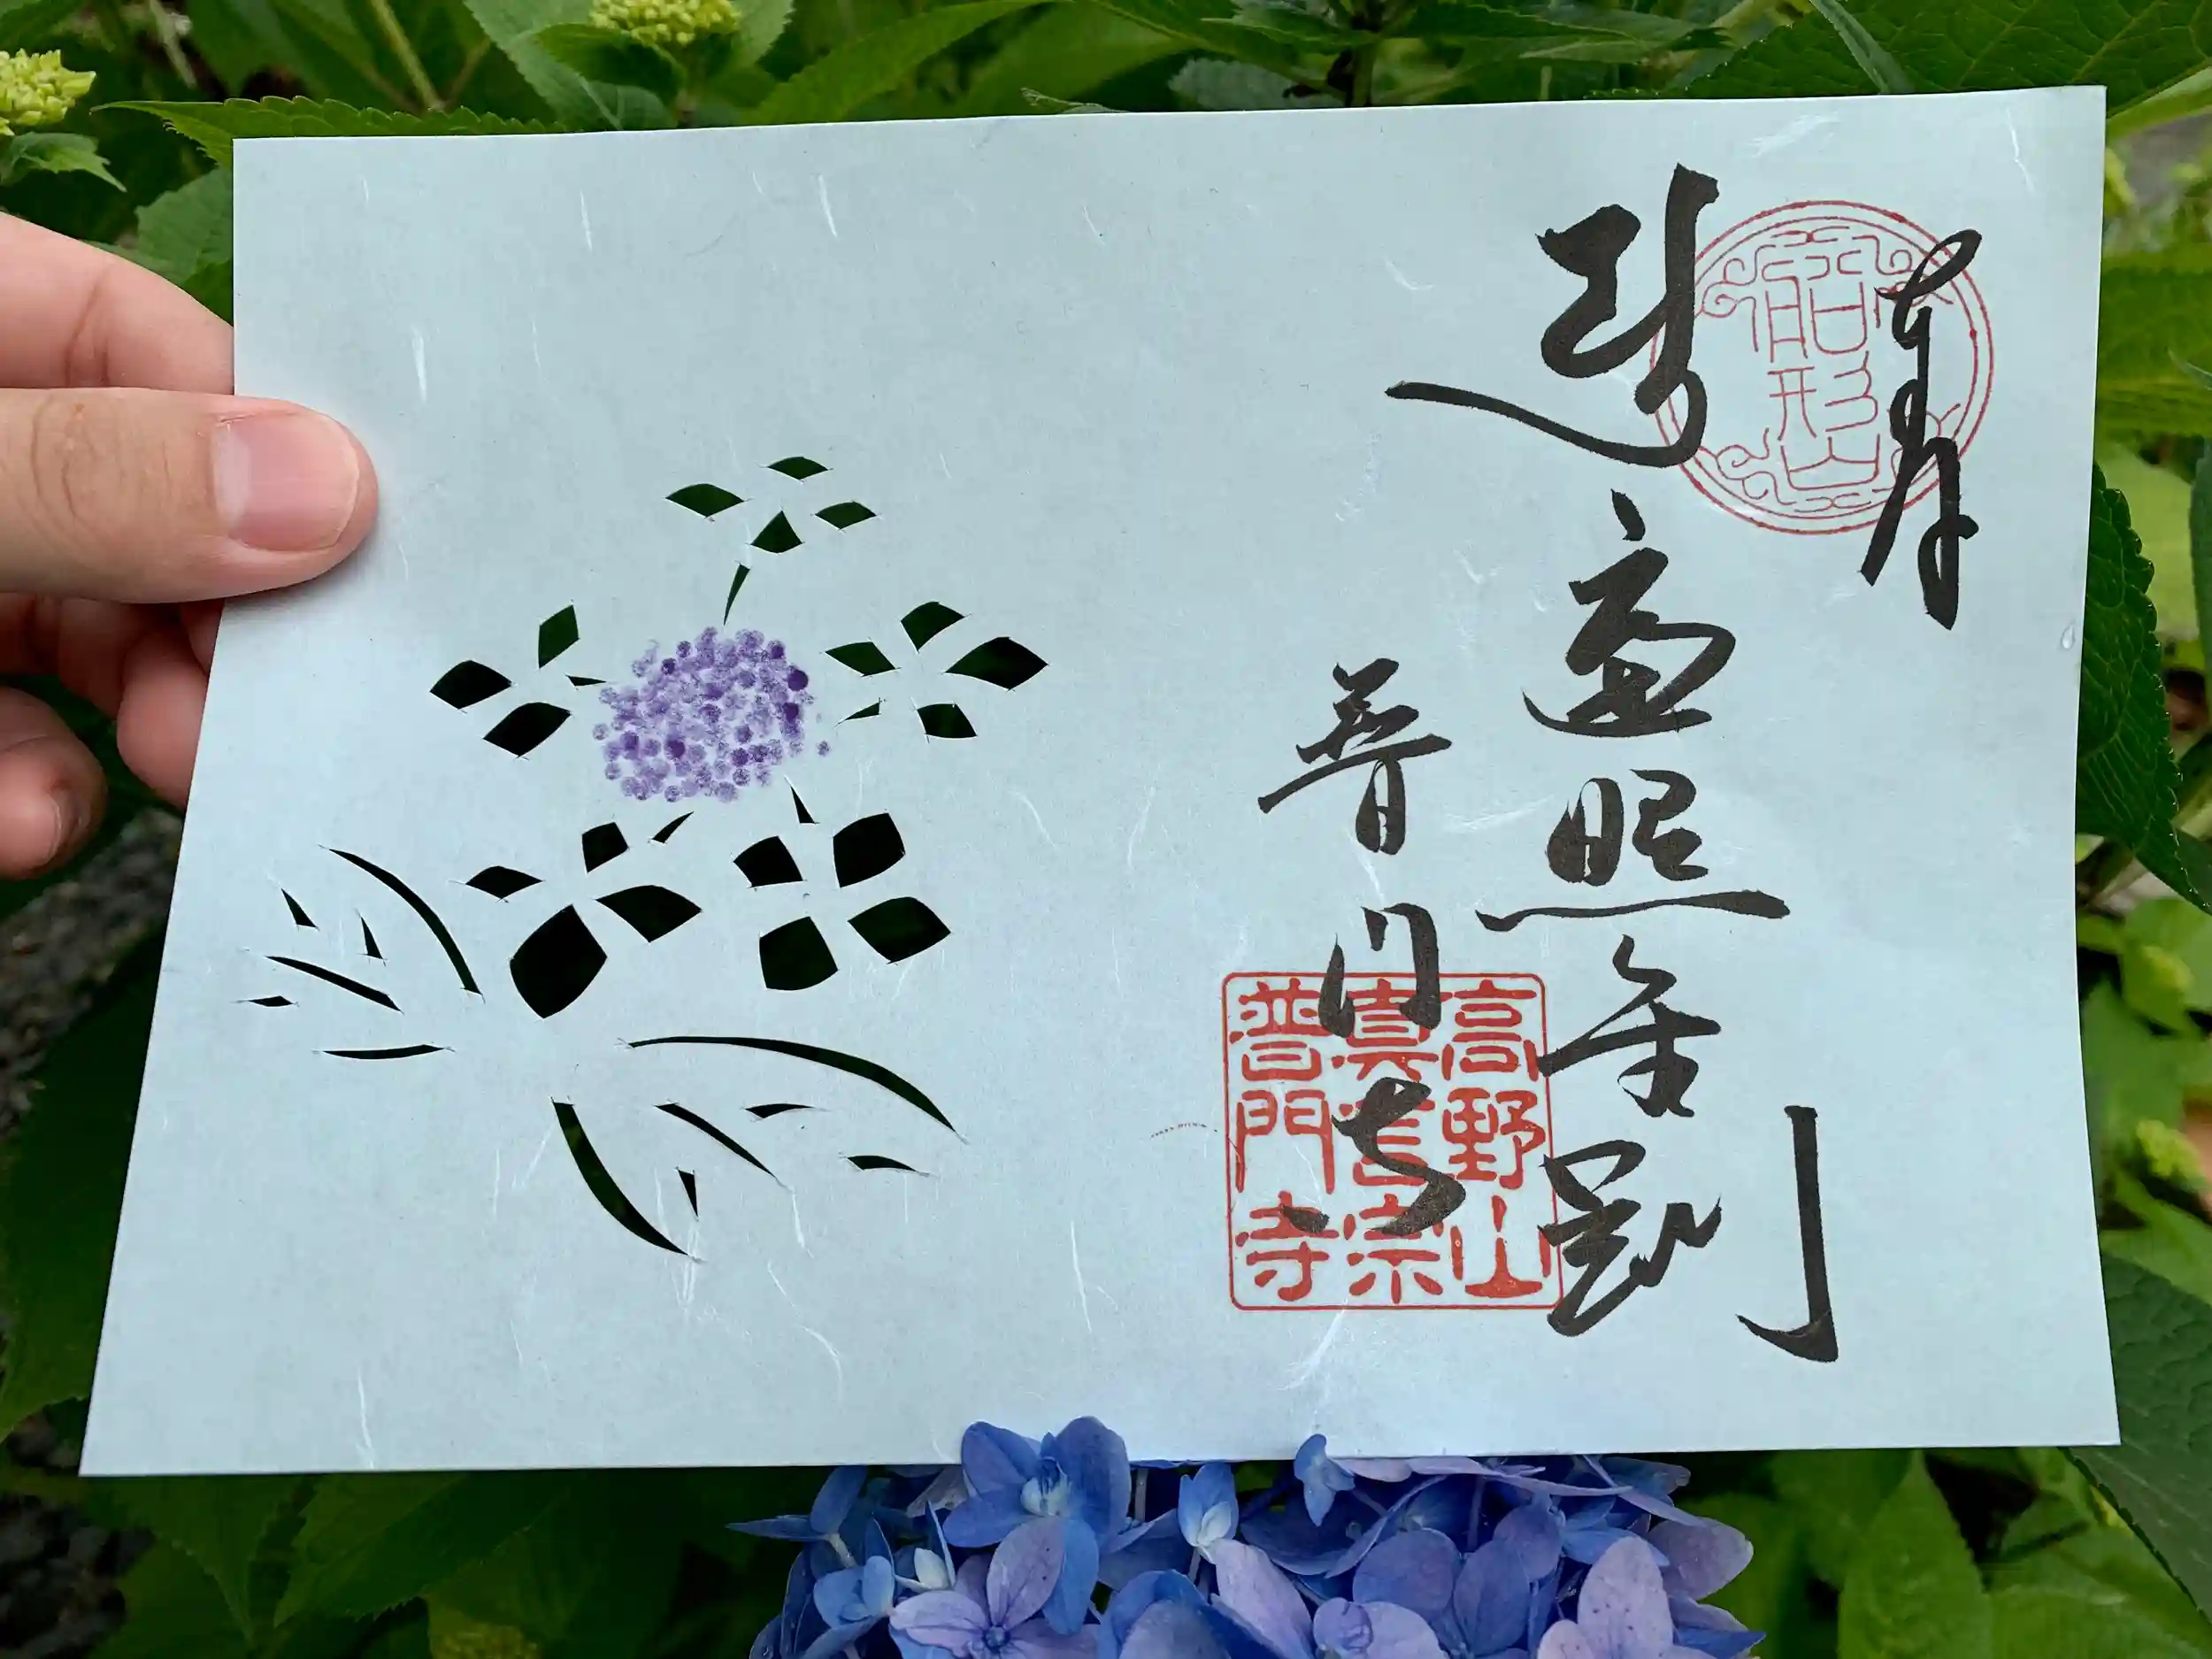 奉拝
船形山
遍照金剛
普門寺
高野山
真言宗
普門寺